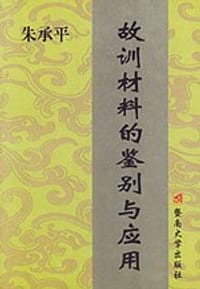 朱承平
故训材料的鉴别与应用
暨南大学出版社